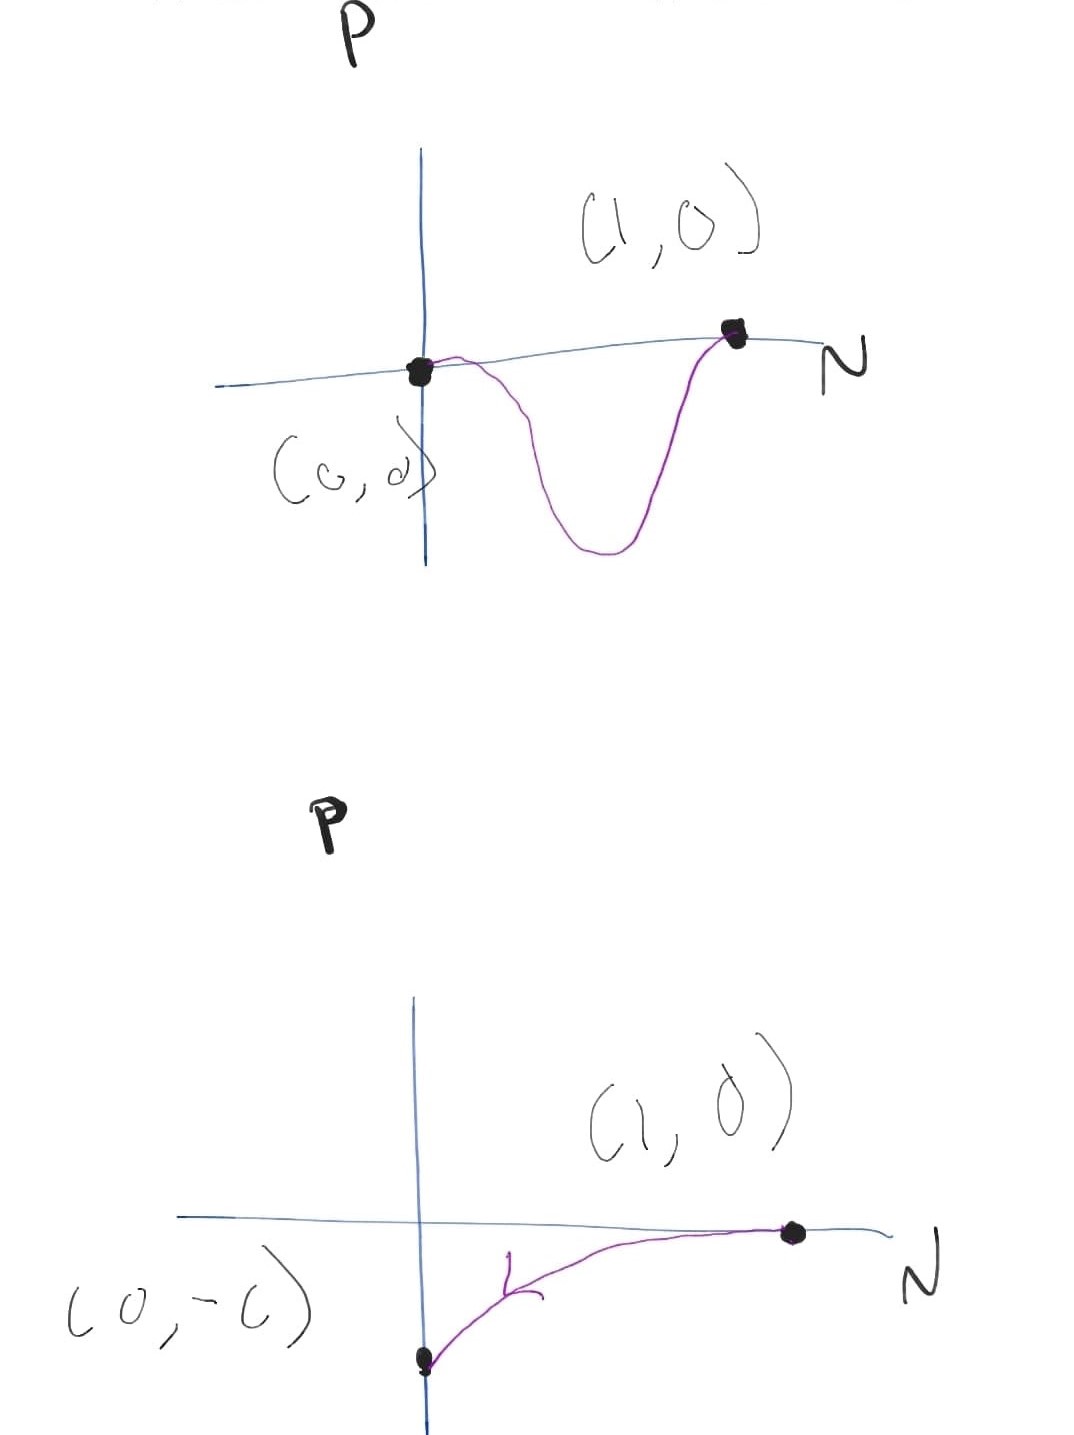 P
(1,0)
N
(0,0)
P
(1,0)
N
(0,-c)